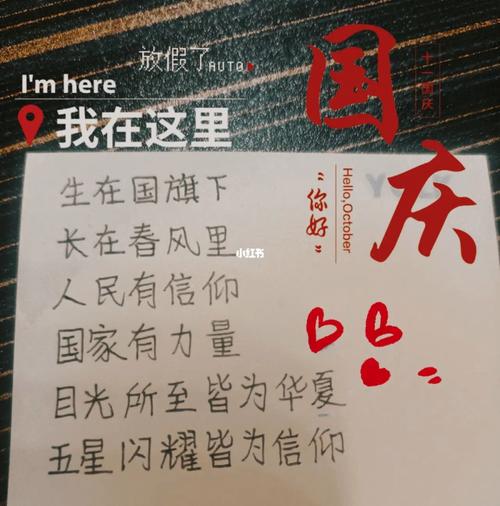 放假了AUTO
I'm here
我在这里
国庆
十一国庆
Hello,October
“你好”
生在国旗下
长在春风里
小红书
人民有信仰
国家有力量
目光所至皆为华夏
五星闪耀皆为信仰